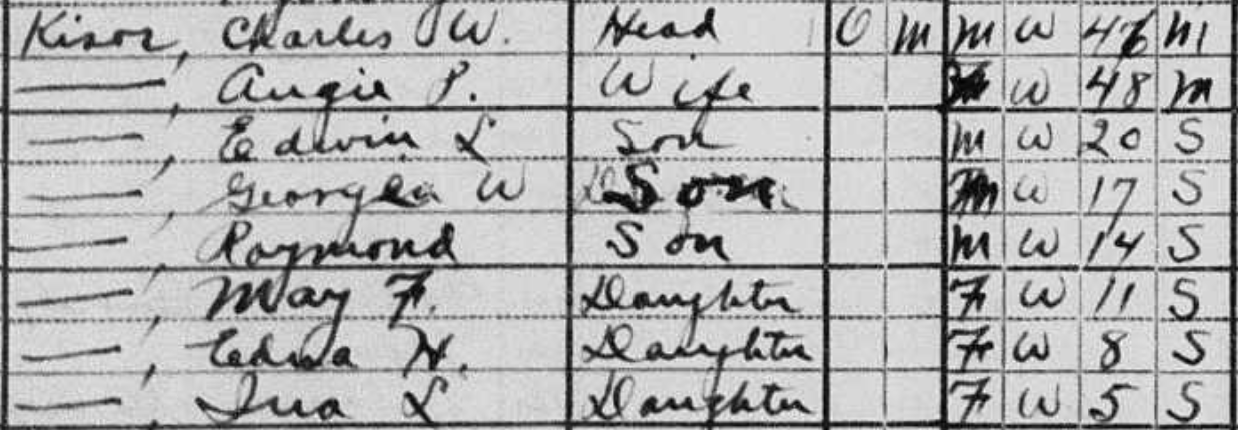 Kisor, Charles W. Head O M M W 46 M
—, Angie P. Wife F W 48 M
—, Edwin L Son M W 20 S
—, Georgia W Son M W 17 S
—, Raymond Son M W 14 S
—, May F. Daughter F W 11 S
—, Edna H. Daughter F W 8 S
—, Ina L Daughter F W 5 S